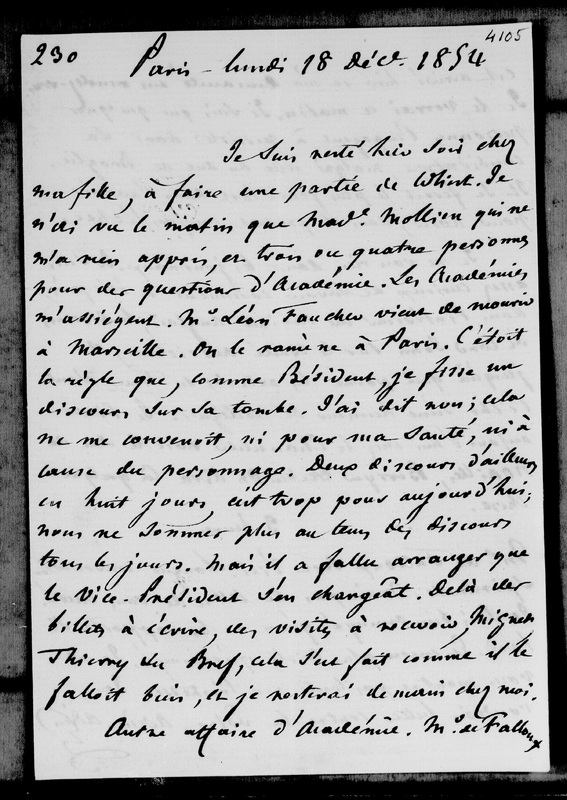 4105
230
Paris - lundi 18 Déc. 1854
Je suis resté hier soir chez
ma fille, à faire une partie de Whist. Je
n'ai vu le matin que Made. Mollien qui ne
m'a rien appris, et trois ou quatre personnes
pour des questions d'Académie. Les Académies
m'assiégent. Mr. Léon Faucher vient de mourir
à Marseille. On le ramène à Paris. C'étoit
la règle que, comme Président, je fisse un
discours sur sa tombe. J'ai dit non; cela
ne me convenoit, ni pour ma santé, ni à
cause du personnage. Deux discours d'ailleurs
en huit jours, c'est trop pour aujourd'hui;
nous ne sommes plus au tems des discours
tous les jours. Mais il a fallu arranger que
le Vice-Président s'en chargeât. Delà des
billets à écrire, des visites à recevoir, Mignet,
Thierry &a. Bref, cela s'est fait comme il le
falloit bien, et je resterai demain chez moi.
Autre affaire d'Académie. Mr. de Falloux